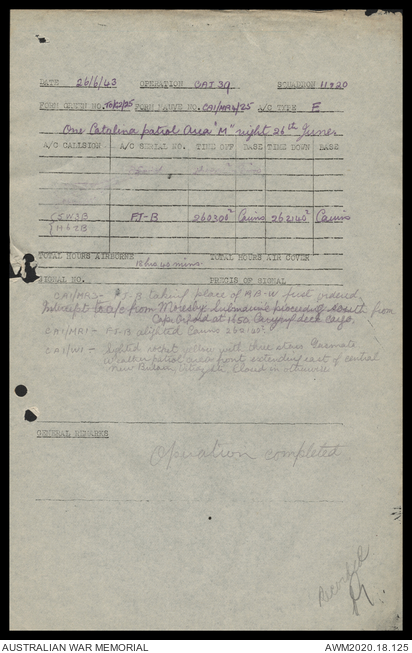 DATE 26/6/43 OPERATION CAT 39 SQUADRON 11 & 20
FORM GREEN NO. FORM MAUVE NO. CAI/MR4/25 A/C TYPE E
One Catalina patrol Area "M" night 26th June
A/C CALLSIGN A/C SERIAL NO. TIME OFF BASE TIME DOWN BASE
5W3B FJ-B 260300Z Cairns 262140Z Cairns
M62B
TOTAL HOURS AIRBORNE 18 hrs 40 mins. TOTAL HOURS AIR COVER
SIGNAL NO. PRECIS OF SIGNAL
CAI/MR3 - FJ-B taking place of RB-W first ordered.
Intercept to a/c from Moresby Submarine proceeding south from
Cape Orford at 1650 Carrying deck cargo.
CAI/MR1 - FJ-B Cairns
CAI/W1 - Sighted rocket yellow with three stars
patrol area front extending east of central
New Britain
GENERAL REMARKS
Operation completed
AUSTRALIAN WAR MEMORIAL AWM2020.18.125